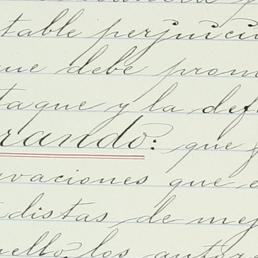 table perjuici
que debe prom
taque y la def
rando: que
vaciones que e
distas de me
ello, los autor